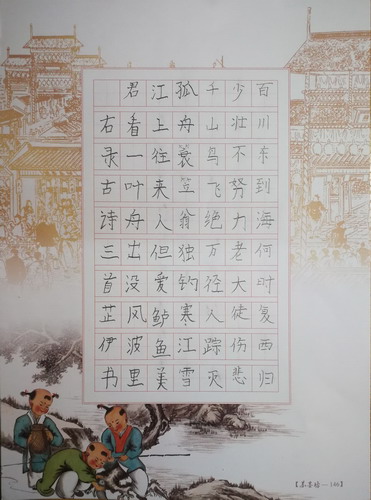 百川东到海何时复西归
少壮不努力老大徒伤悲
千山鸟飞绝万径人踪灭
孤舟蓑笠翁独钓寒江雪
江上往来人但爱鲈鱼美
君看一叶舟出没风波里
右录古诗三首芷伊书